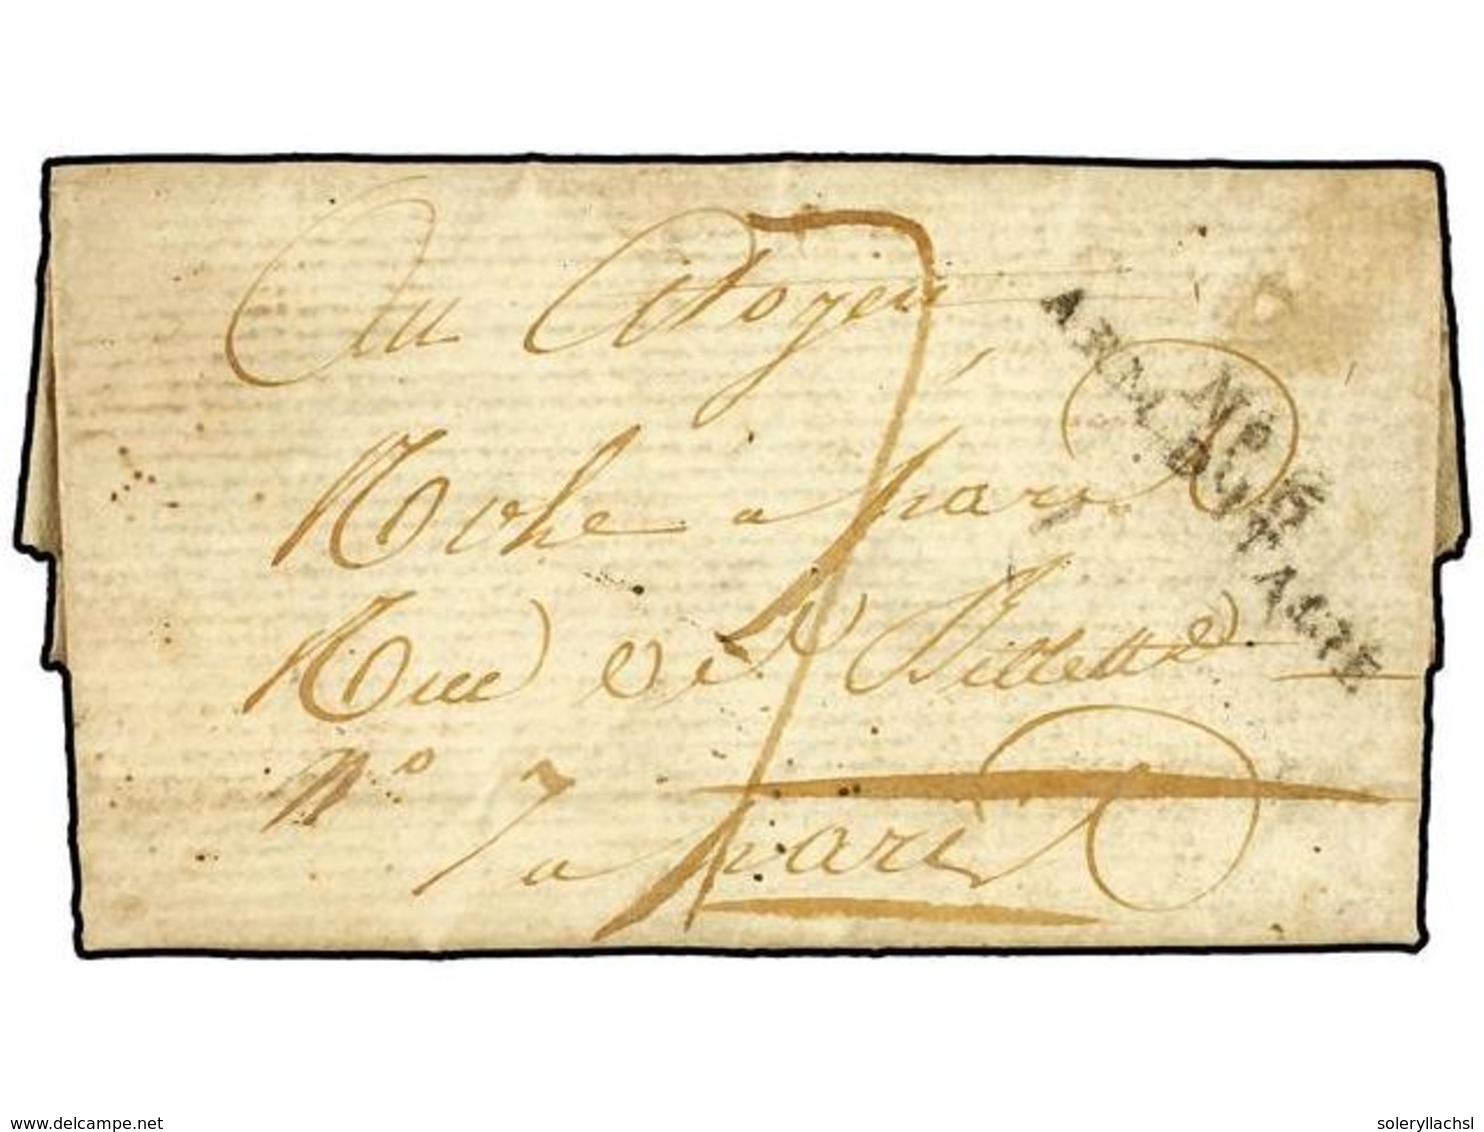 Au Citoyen
Roche à paris
Rue des Billettes
N° 7
a paris
7
N° 6
ARM. D'ITALIE
www.delcampe.net
soleryllachsl